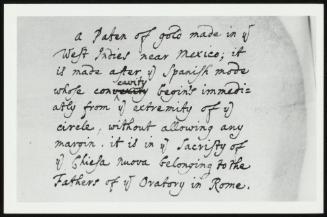 a Paten of gold made in yͤ
West Indies near Mexico; it
is made after yͤ Spanish mode
whose concavity begins immedi-
atly from yͤ extremity of yͤ
circle, without allowing any
margin. it is in yͤ Sacristy of
yͤ Chiesa nuova belonging to the
Fathers of yͤ Oratory in Rome.